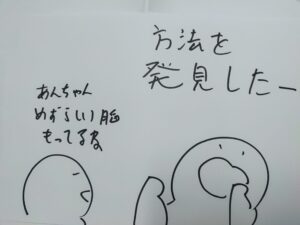 方法を
発見したー
あんちゃん
めずらしい脳
もってるな